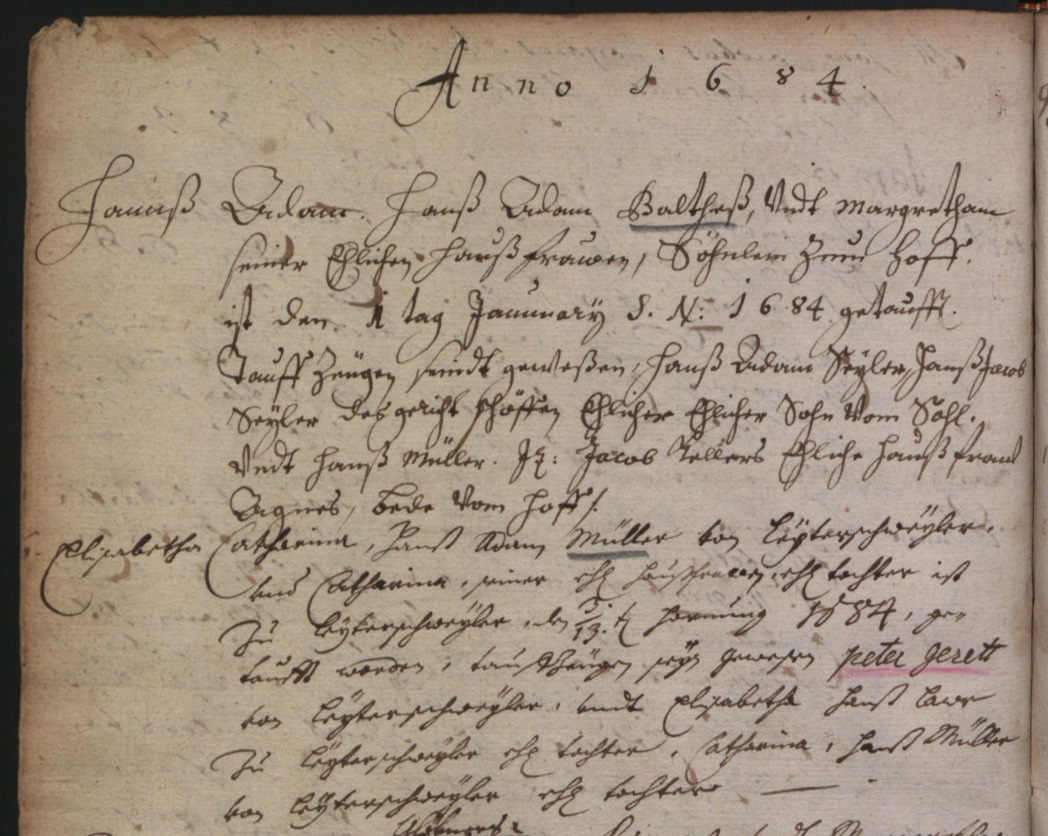 Anno 1684.
Hannß Adam. Hanß Adam Baltheß, Undt Margretham
seiner Ehlichen haußfrawen, Söhnlein Zum Hoff.
ist den 1 tag Januuary S. N: 1684 getaufft.
Tauff Zeugen seindt geweßen, Hanß Adam Seyler, Hanß Jacob
Seyler des gericht schöffen Ehlicher Ehlicher Sohn Vom Sohl.
Undt Hanß Müller. It: Jacob Kellers Ehliche haußfraw
Agnes, bede Vom Hoff.
Elisabetha Catharina, Hanß Adam Müller von Leyterschweyler.
und Catharina, seiner ehl haußfrawen, ehl tochter ist
Zu Leyterschweyler, den 3./13. Hornung 1684, ge=
taufft worden, tauffzeugen seyn gewesen peter gerett
von Leyterschweyler, undt Elisabetha Hanß
Zu Leyterschweyler ehl tochter, Catharina, Hanß Müller
von Leyterschweyler ehl tochter